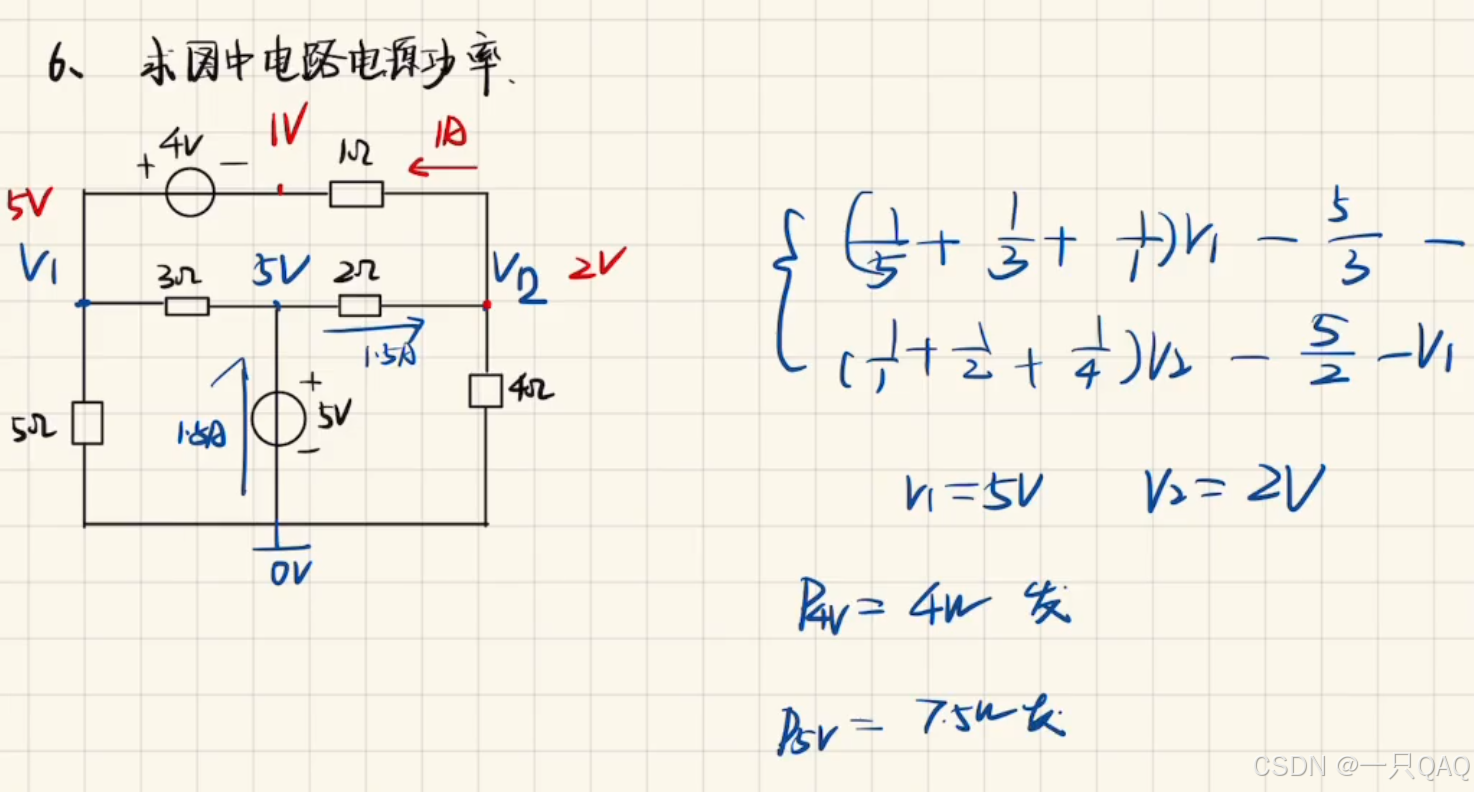 6、求图中电路电源功率.
1V
1A
+ 4V −
1Ω
5V
V1
3Ω
5V
2Ω
V2 2V
1.5A
+
5V
−
4Ω
5Ω
1.5A
0V
(1/5 + 1/3 + 1/1)V1 − 5/3 −
(1/1 + 1/2 + 1/4)V2 − 5/2 − V1
V1 = 5V V2 = 2V
P4V = 4W 发
P5V = 7.5W 发
CSDN @一只QAQ